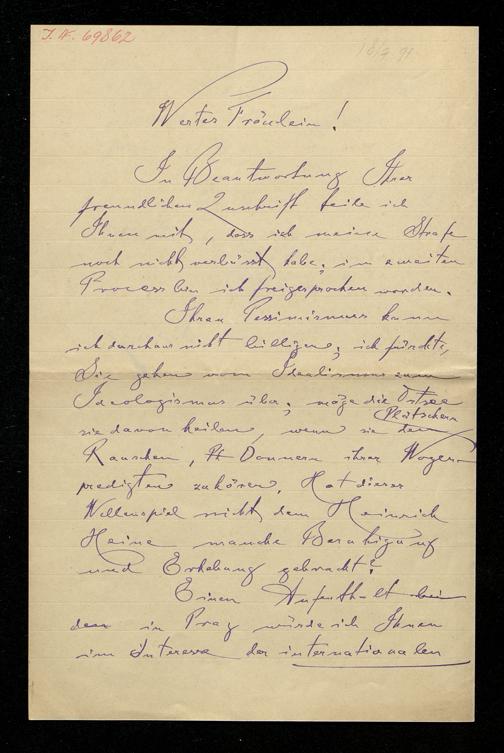 J. N. 69862
18/7 91
Wertes Fräulein!
In Beantwortung Ihrer
freundlichen Zuschrift teile ich
Ihnen mit, dass ich meine Strafe
noch nicht verbüsst habe; im zweiten
Process bin ich freigesprochen worden.
Ihren Pessimismus kann
ich durchaus nicht billigen; ich fürchte,
Sie gehen vom Idealismus zum
Ideologismus über; möge die Ostsee
sie davon heilen, wenn sie dem Plätschern
Rauschen, Donnern ihrer Wogen
predigten zuhören. Hat dieses
Wellenspiel nicht dem Heinrich
Heine manche Beruhigung
und Erhebung gebracht?
Einen Aufenthalt
in Prag würde ich Ihnen
im Interesse der internationalen